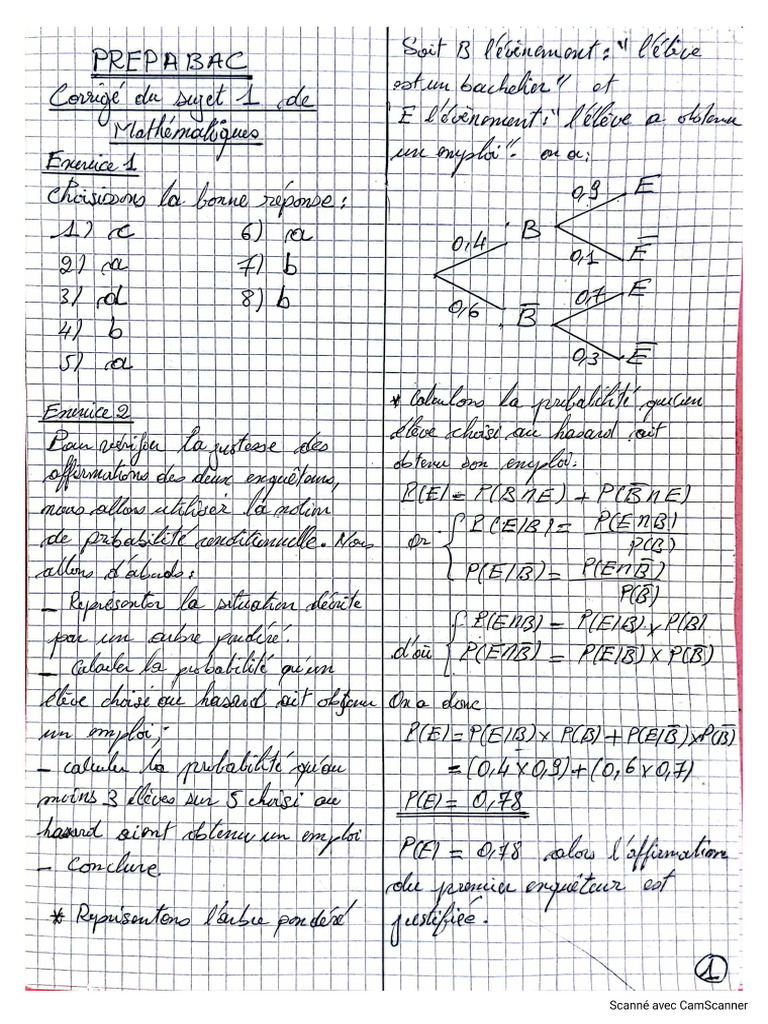 PREPABAC
Corrigé du sujet 1 de
Mathématiques
Exercice 1
Choisissons la bonne réponse :
1) c 6) a
2) a 7) b
3) d 8) b
4) b
5) a
Exercice 2
Pour vérifier la justesse des
affirmations des deux enquêteurs,
nous allons utiliser la notion
de probabilité conditionnelle. Nous
allons d'abords :
– Représenter la situation décrite
par un arbre pondéré.
– Calculer la probabilité qu'un
élève choisi au hasard ait obtenu
un emploi ;
– calculer la probabilité qu'au
moins 3 élèves sur 5 choisi au
hasard aient obtenu un emploi
– Conclure.
* Représentons l'arbre pondéré
Soit B l'évènement : "l'élève
est un bachelier" et
E l'évènement : "l'élève a obtenu
un emploi". on a :
0,9 E
B
0,4 0,1 E̅
0,6 0,7 E
B̅
0,3 E̅
* Calculons la probabilité qu'un
élève choisi au hasard ait
obtenu son emploi.
P(E) = P(B∩E) + P(B̅∩E)
or { P(E/B) = P(E∩B) / P(B)
P(E/B̅) = P(E∩B̅) / P(B̅)
d'où { P(E∩B) = P(E/B) × P(B)
P(E∩B̅) = P(E/B̅) × P(B̅)
On a donc
P(E) = P(E/B) × P(B) + P(E/B̅) × P(B̅)
= (0,4 × 0,9) + (0,6 × 0,7)
P(E) = 0,78
P(E) = 0,78 alors l'affirmation
du premier enquêteur est
justifiée.
1
Scanné avec CamScanner